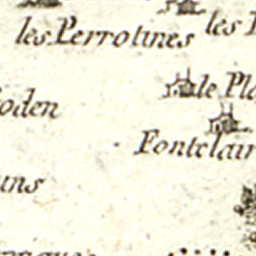 les Perrotines
les
le Pla
oden
Fontclair
uns